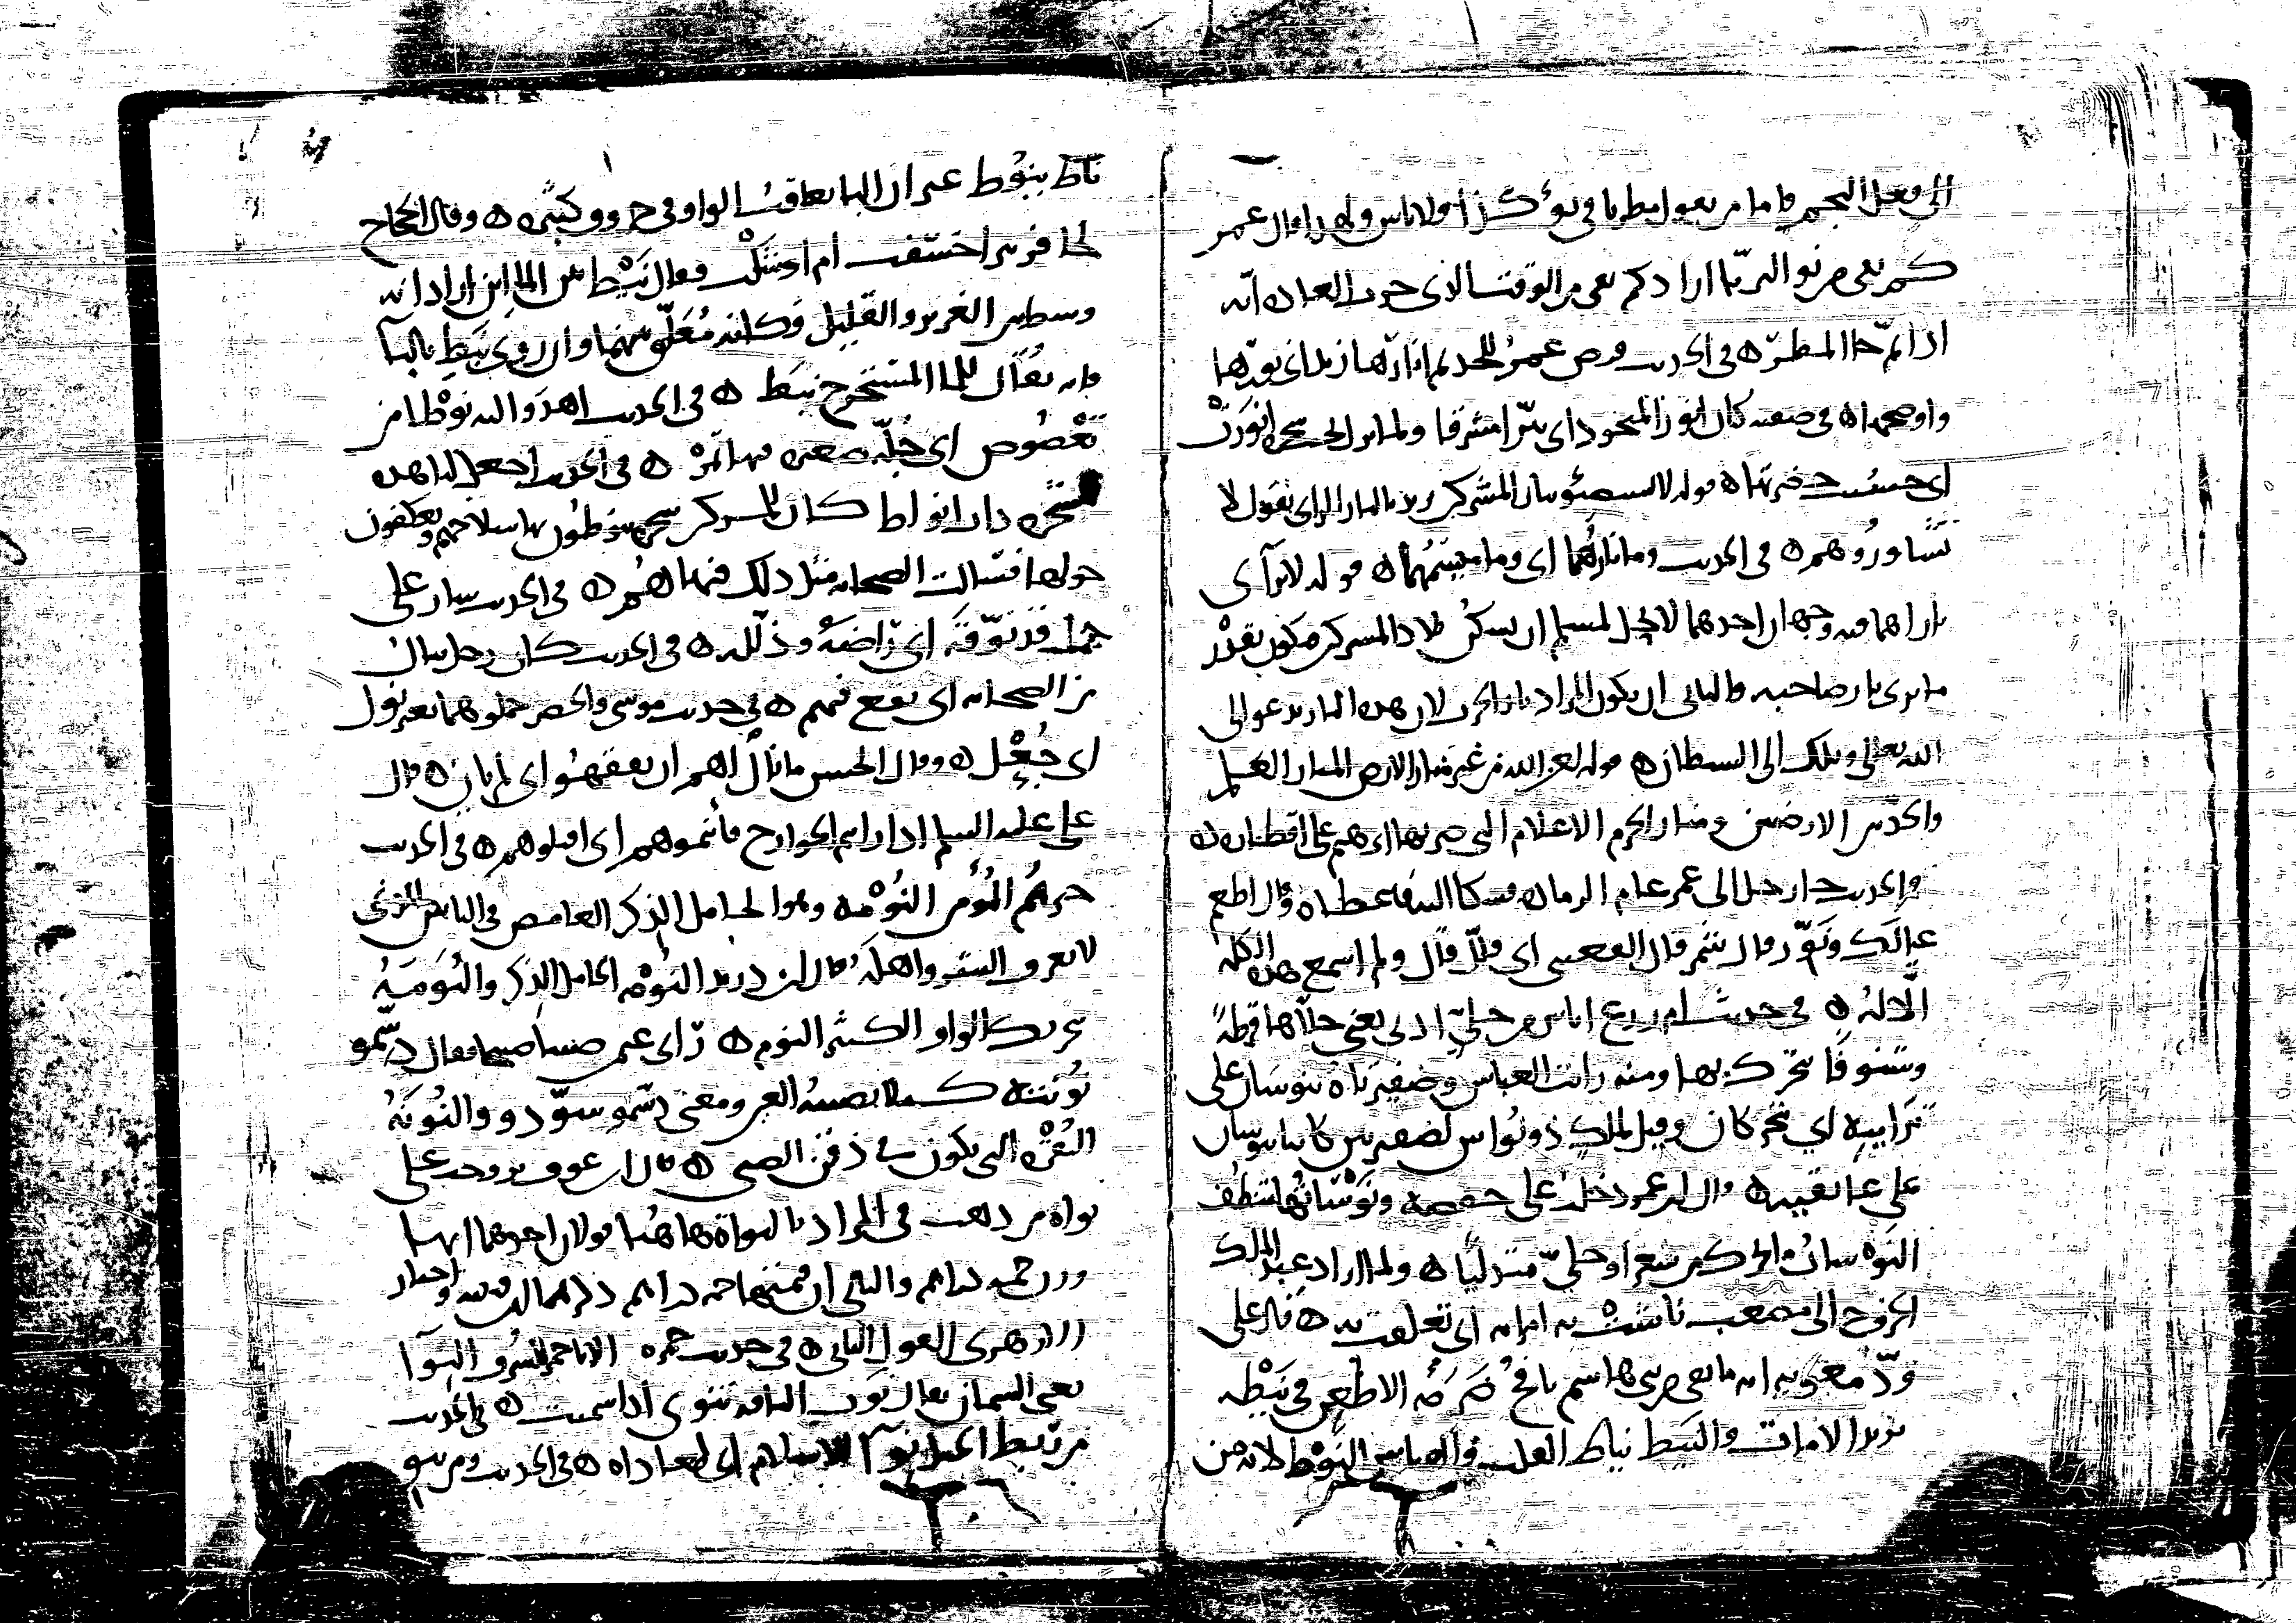 الى فعل النجم فاما من يقول مطرنا في نوء كذا اولا باس ولهذا قال عمر
كم بقي من نوء الثريا اراد كم بقي من الوقت الذي جرت العادة انه
اذا تم جا المطر ه في الحديث فرض عمر للجد ثم انارها زيد اي نورها
واوضحها ه في صفته كان انور المتجرد اي نيرا مشرقا
اي حسنت خضرتها ه قوله لا تستضيئوا بنار المشركين يريد بالنار الراي يقول لا
تشاوروهم ه في الحديث وما نارهما اي وما سمتهما ه قوله لا تراآى
ناراهما فيه وجهان احدهما لا يحل لمسلم ان يسكن بلاد المشركين فيكون بقدر
ما يرى نار صاحبه والثاني ان يكون المراد نار الحرب لان هذه النار تدعو الى
الله تعالى وتلك الى الشيطان ه قوله لعن الله من غير منار الارض المنار العلم
والحد بين الارضين ومنار الحرم الاعلام التي ضربها ابرهيم على اقطاره ه
في الحديث جا رجل الى عمر عام الرمادة فشكا اليه وقال اطعم
عيالك ونور قال شمر قال القعنبي اي قلل قال ولم اسمع هذه الكلمة
الا له ه في حديث ام زرع اناس من حلي اذني يعني حلاها قرطة
وشنوفا تتحرك بها ومنه رايت العباس وضفيرتاه تنوسان على
ترايبه اي تتحركان وقيل لملك ذو نواس لضفيرتين كانتا تنوسان
على عاتقيه ه قال ابن عمر دخلت على حفصة ونوساتها تنطف
النوسات ما تحرك من شعر او حلي متدليا ه ولما اراد عبد الملك
الخروج الى مصعب ناشت به امراته اي تعلقت به ه قال علي
ود معوية انه ما بقي من بني هاشم نافخ ضرمة الا طعن في نيطه
يريد الا مات والنيط نياط القلب والقياس النوط لانه من
ناط ينوط غير ان اليا تعاقب الواو في حروف كثيرة ه وقال الحجاج
لحافر بير اخسفت ام اوشلت فقال نيط بين الماين اراد انه
وسط بين الغزير والقليل فكانه معلق بينهما وان روي نبط بالبا
فانه يقال للما المستخرج نبط ه في الحديث اهدوا اليه نوطا من
تعضوض اي جلة صغيرة فيها تمر ه في الحديث اجعل لنا هذه
الشجرة ذات انواط كان للمشركين شجرة ينوطون بها سلاحهم ويعكفون
حولها فسالت الصحابة مثل ذلك فنهاهم ه في الحديث سار على
جمل قد نوقه اي راضه وذلله ه في الحديث كان رجل ينال
من الصحابة اي يقع فيهم ه في حديث موسى والخضر حملوهما بغير نول
اي جعل ه وقال الحسن ما نال لهم ان يفقهوا اي لم يان ه قال
علي عليه السلم اذا رايتم الخوارج فانيموهم اي اقتلوهم ه في الحديث
خيرهم المومن النومة وهو الخامل الذكر الغامض في الناس الذي
لا يعرف الشر واهله قال ابن دريد النومة الخامل الذكر والنومة
بتحريك الواو الكثير النوم ه راى عمر صبيا صبيحا فقال دسموا
نونته كيلا تصيبه العين ومعنى دسموا سودوا والنونة
النقرة التي تكون في ذقن الصبي ه قال ابن عوف تزوجت على
نواة من ذهب في المراد بالنواة هاهنا قولان احدهما انها
وزن خمسة دراهم والثاني ان قيمتها خمسة دراهم واختار
الازهري القول الثاني ه في حديث حمزة الا يا حمز للشرف النوا
يعني السمان يقال نوت الناقة تنوي اذا سمنت ه في الحديث
من ربط الخيل نوا لاهل الاسلام اي لمعاداة ه في الحديث ومن ينو